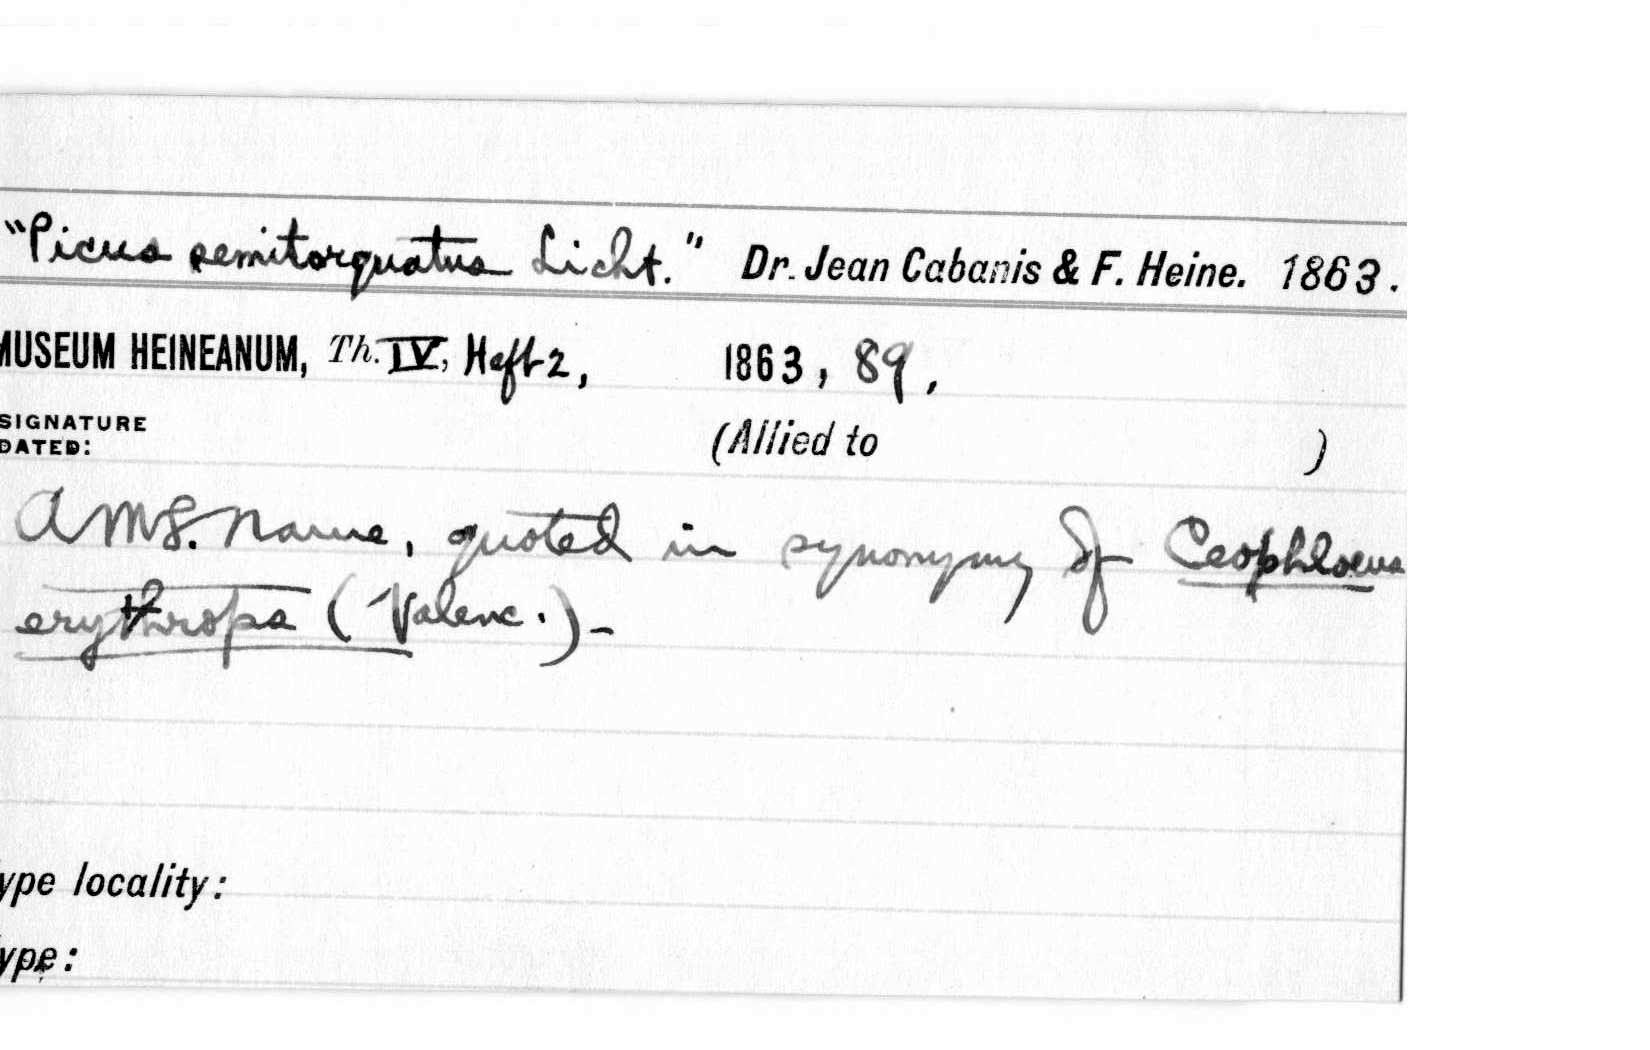 "Picus semitorquatus Licht." Dr. Jean Cabanis & F. Heine. 1863.
MUSEUM HEINEANUM, Th. IV, Heft 2, 1863, 89,
SIGNATURE
DATED:
(Allied to )
A MS. name, quoted in synonymy of Ceophloeus
erythrops (Valenc.)-
ype locality:
ype: